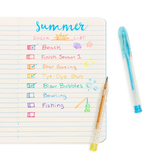 Summer
Beach
Finish Sensor 2
Star Gazing
Tye Dye Shirt
Blow Bubbles
Boating
Fishing